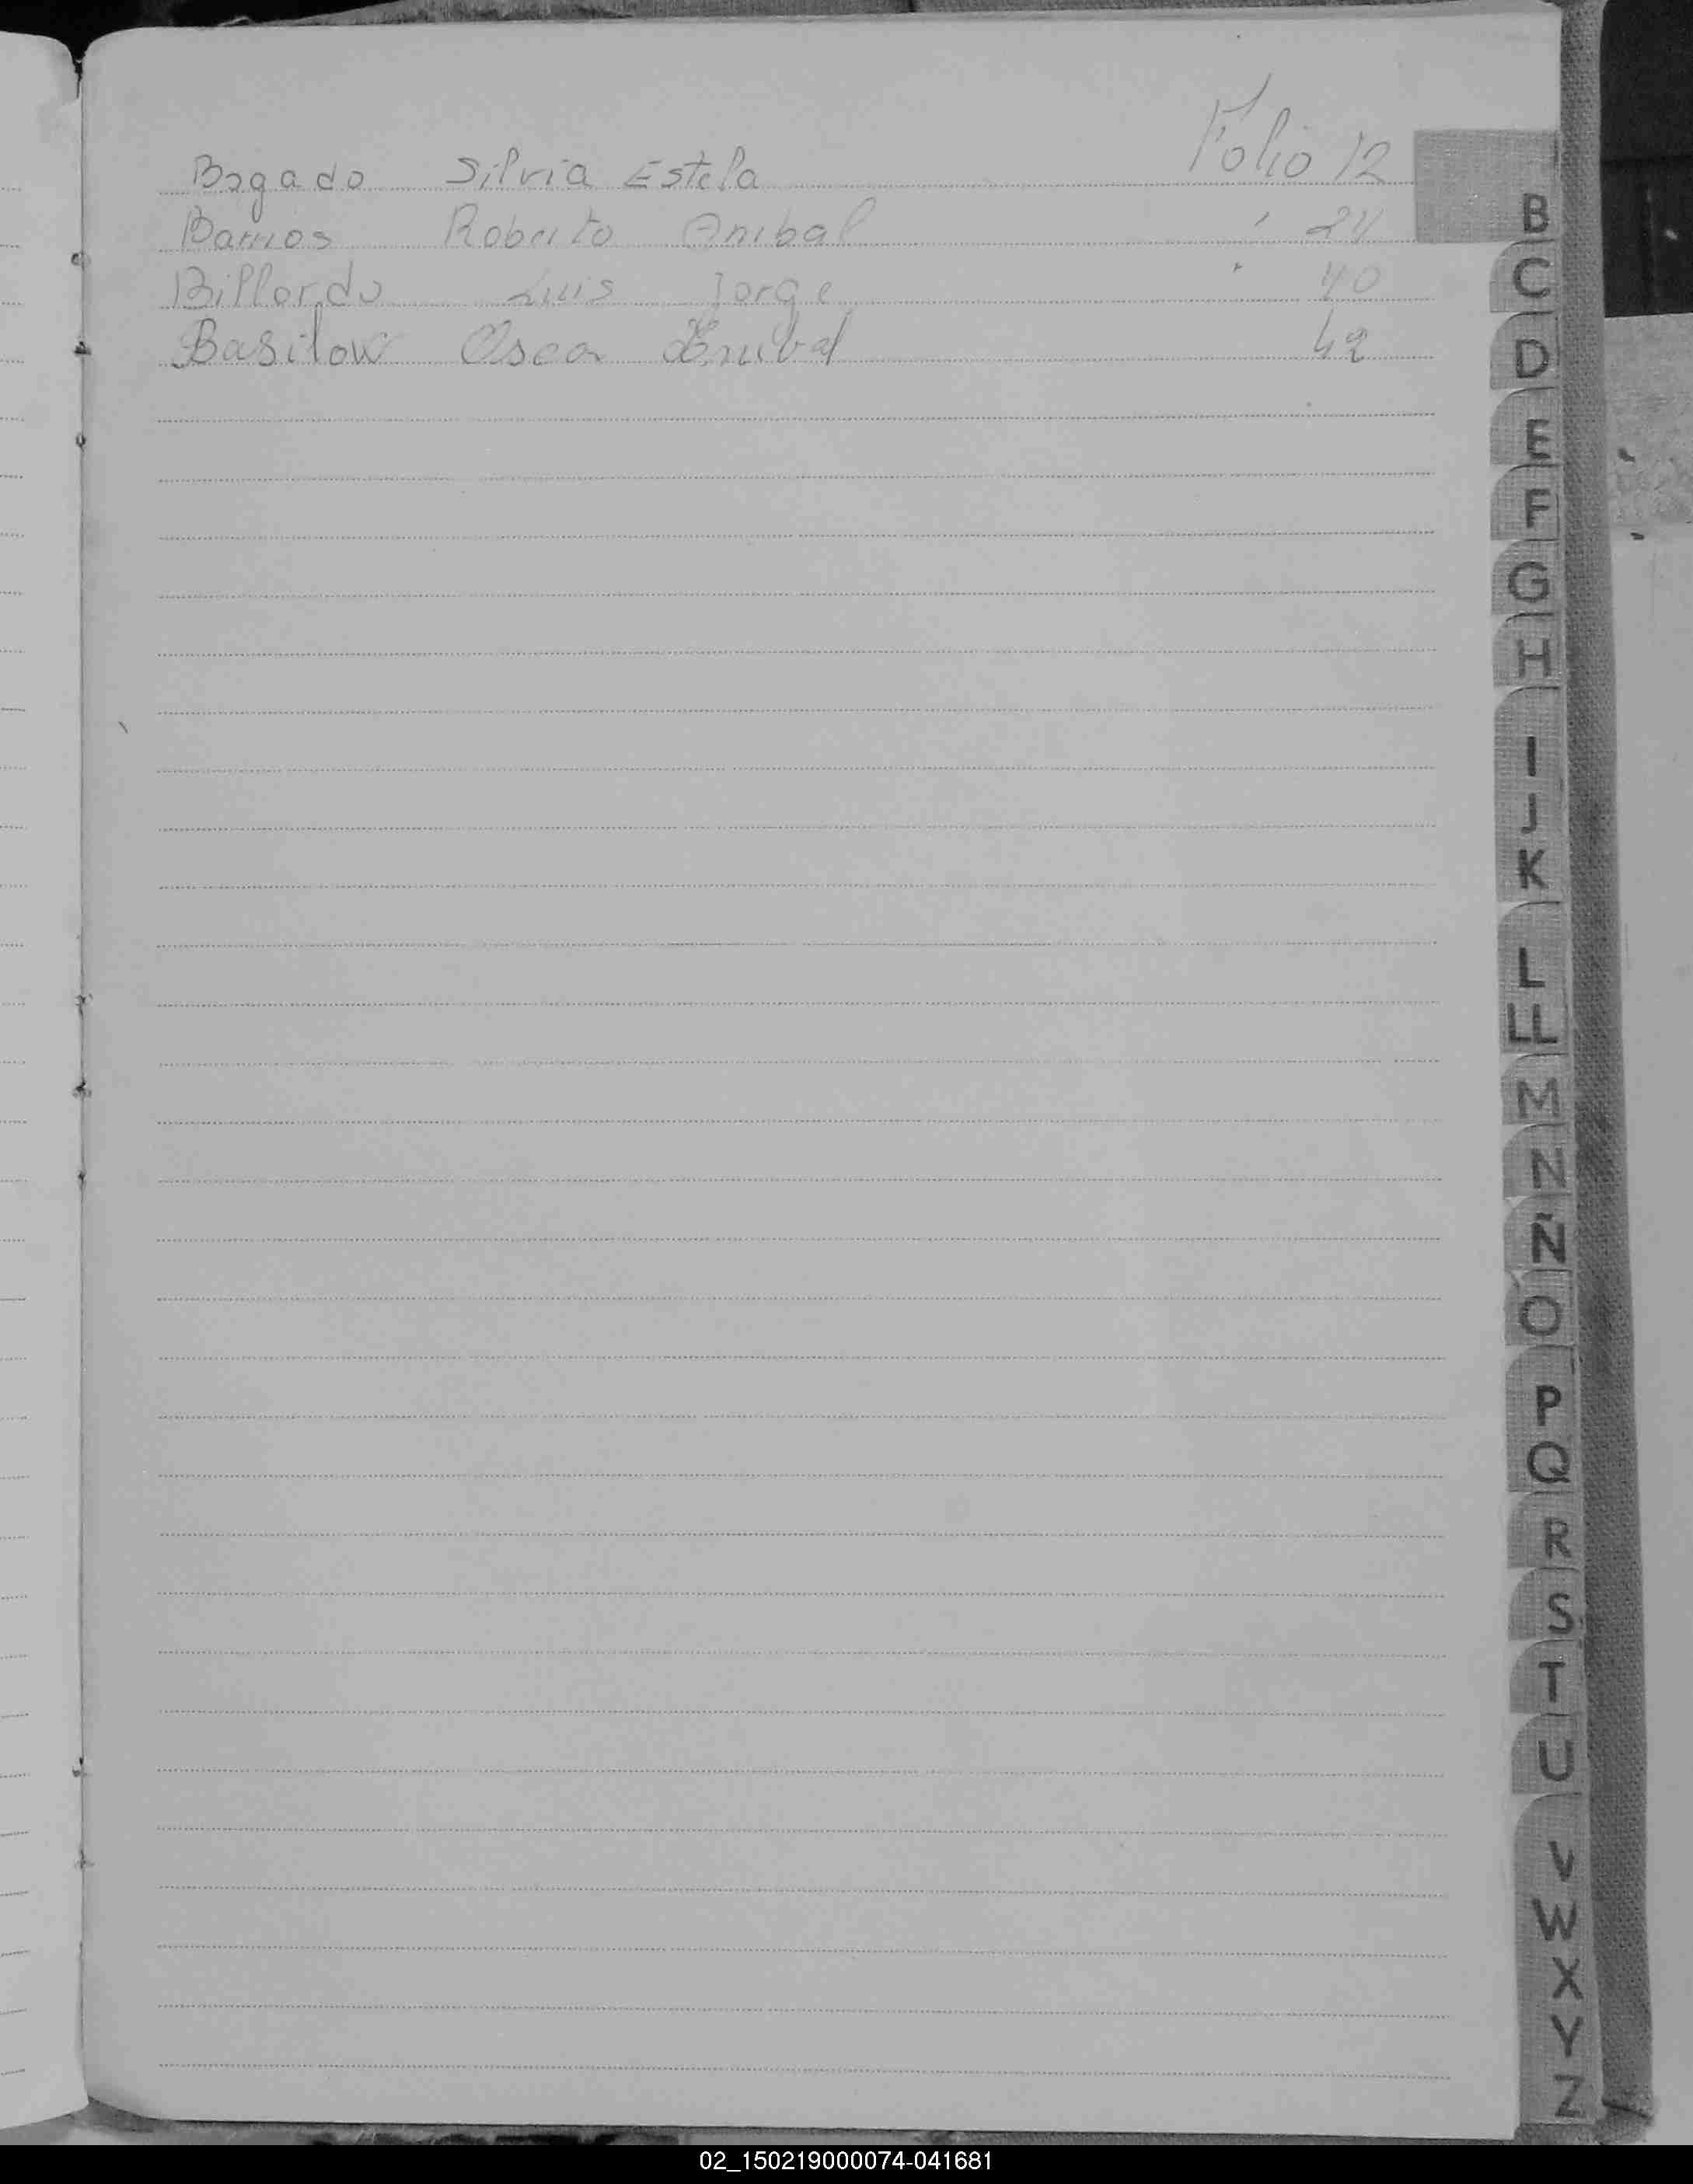 Bogado Silvia Estela Folio 12
Barrios Roberto Anibal " 24
Billordo Luis Jorge " 40
Basilow Oscar Anibal 42
B
C
D
E
F
G
H
I
J
K
L
LL
M
N
Ñ
O
P
Q
R
S
T
U
V
W
X
Y
Z
02_150219000074-041681